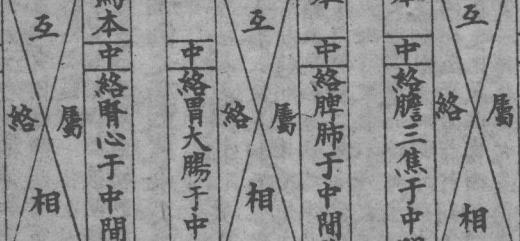 互
屬
絡
相
本
中
絡膽三焦于中
本
中
絡脾肺于中間
互
屬
絡
相
中
絡胃大腸于中
本
中
絡腎心于中間
互
屬
絡
相